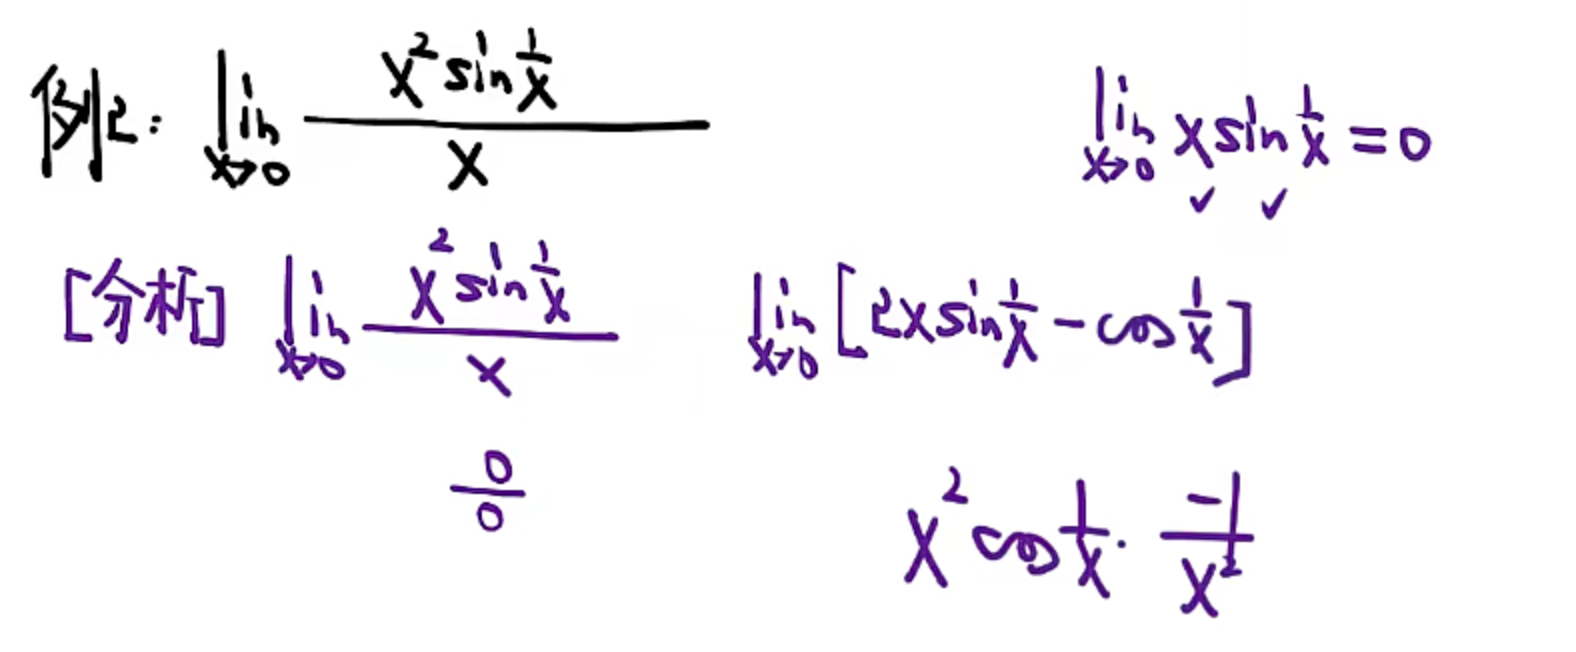 例2: lim x→0 x² sin 1/x / x
lim x→0 x sin 1/x = 0
✓ ✓
[分析] lim x→0 x² sin 1/x / x
lim x→0 [2x sin 1/x - cos 1/x]
0/0
x² cos 1/x · -1/x²